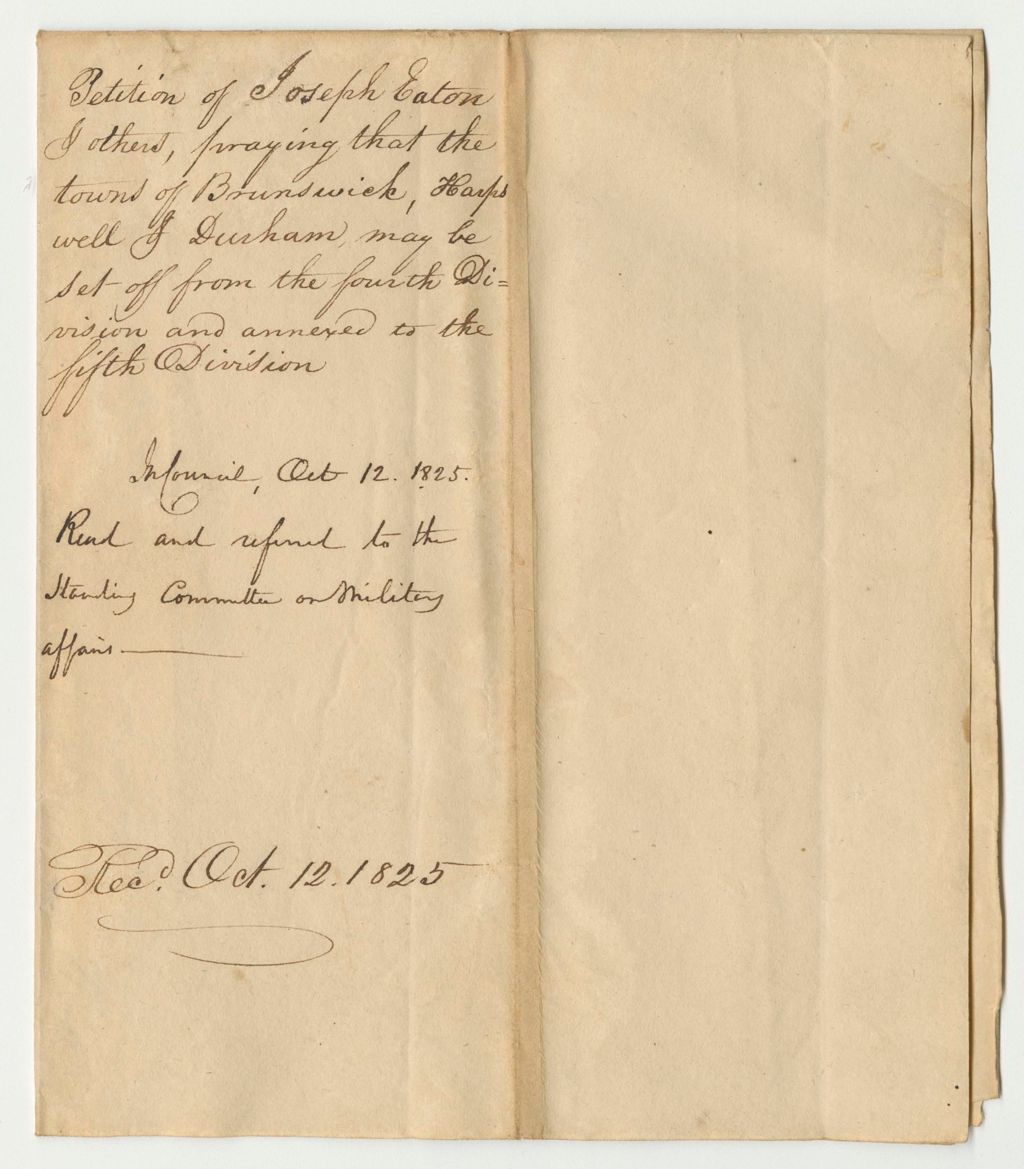 Petition of Joseph Eaton
& others, praying that the
towns of Brunswick, Harps
well & Durham, may be
set off from the fourth Di=
vision and annexed to the
fifth Division
In Council, Oct 12. 1825.
Read and referred to the
Standing Committee on Military
affairs
Recd. Oct. 12. 1825